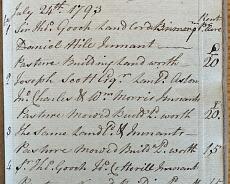 July 24th 1793
Rent
1 Sir Thos. Gooch Landlord
pr Acre
Daniel Hile Tennant
£
Pasture Building Land worth 20
2 Joseph Scott Esqr. Landd. Aston
Jn. Charles & Wm. Morris Tennants
£
Pasture Mowed Buildg. L worth 20.
3 The Same Landld. & Tennants
Pasture Mowed Buildg. L worth 15
4 Sr. Thos. Gooch Tennant